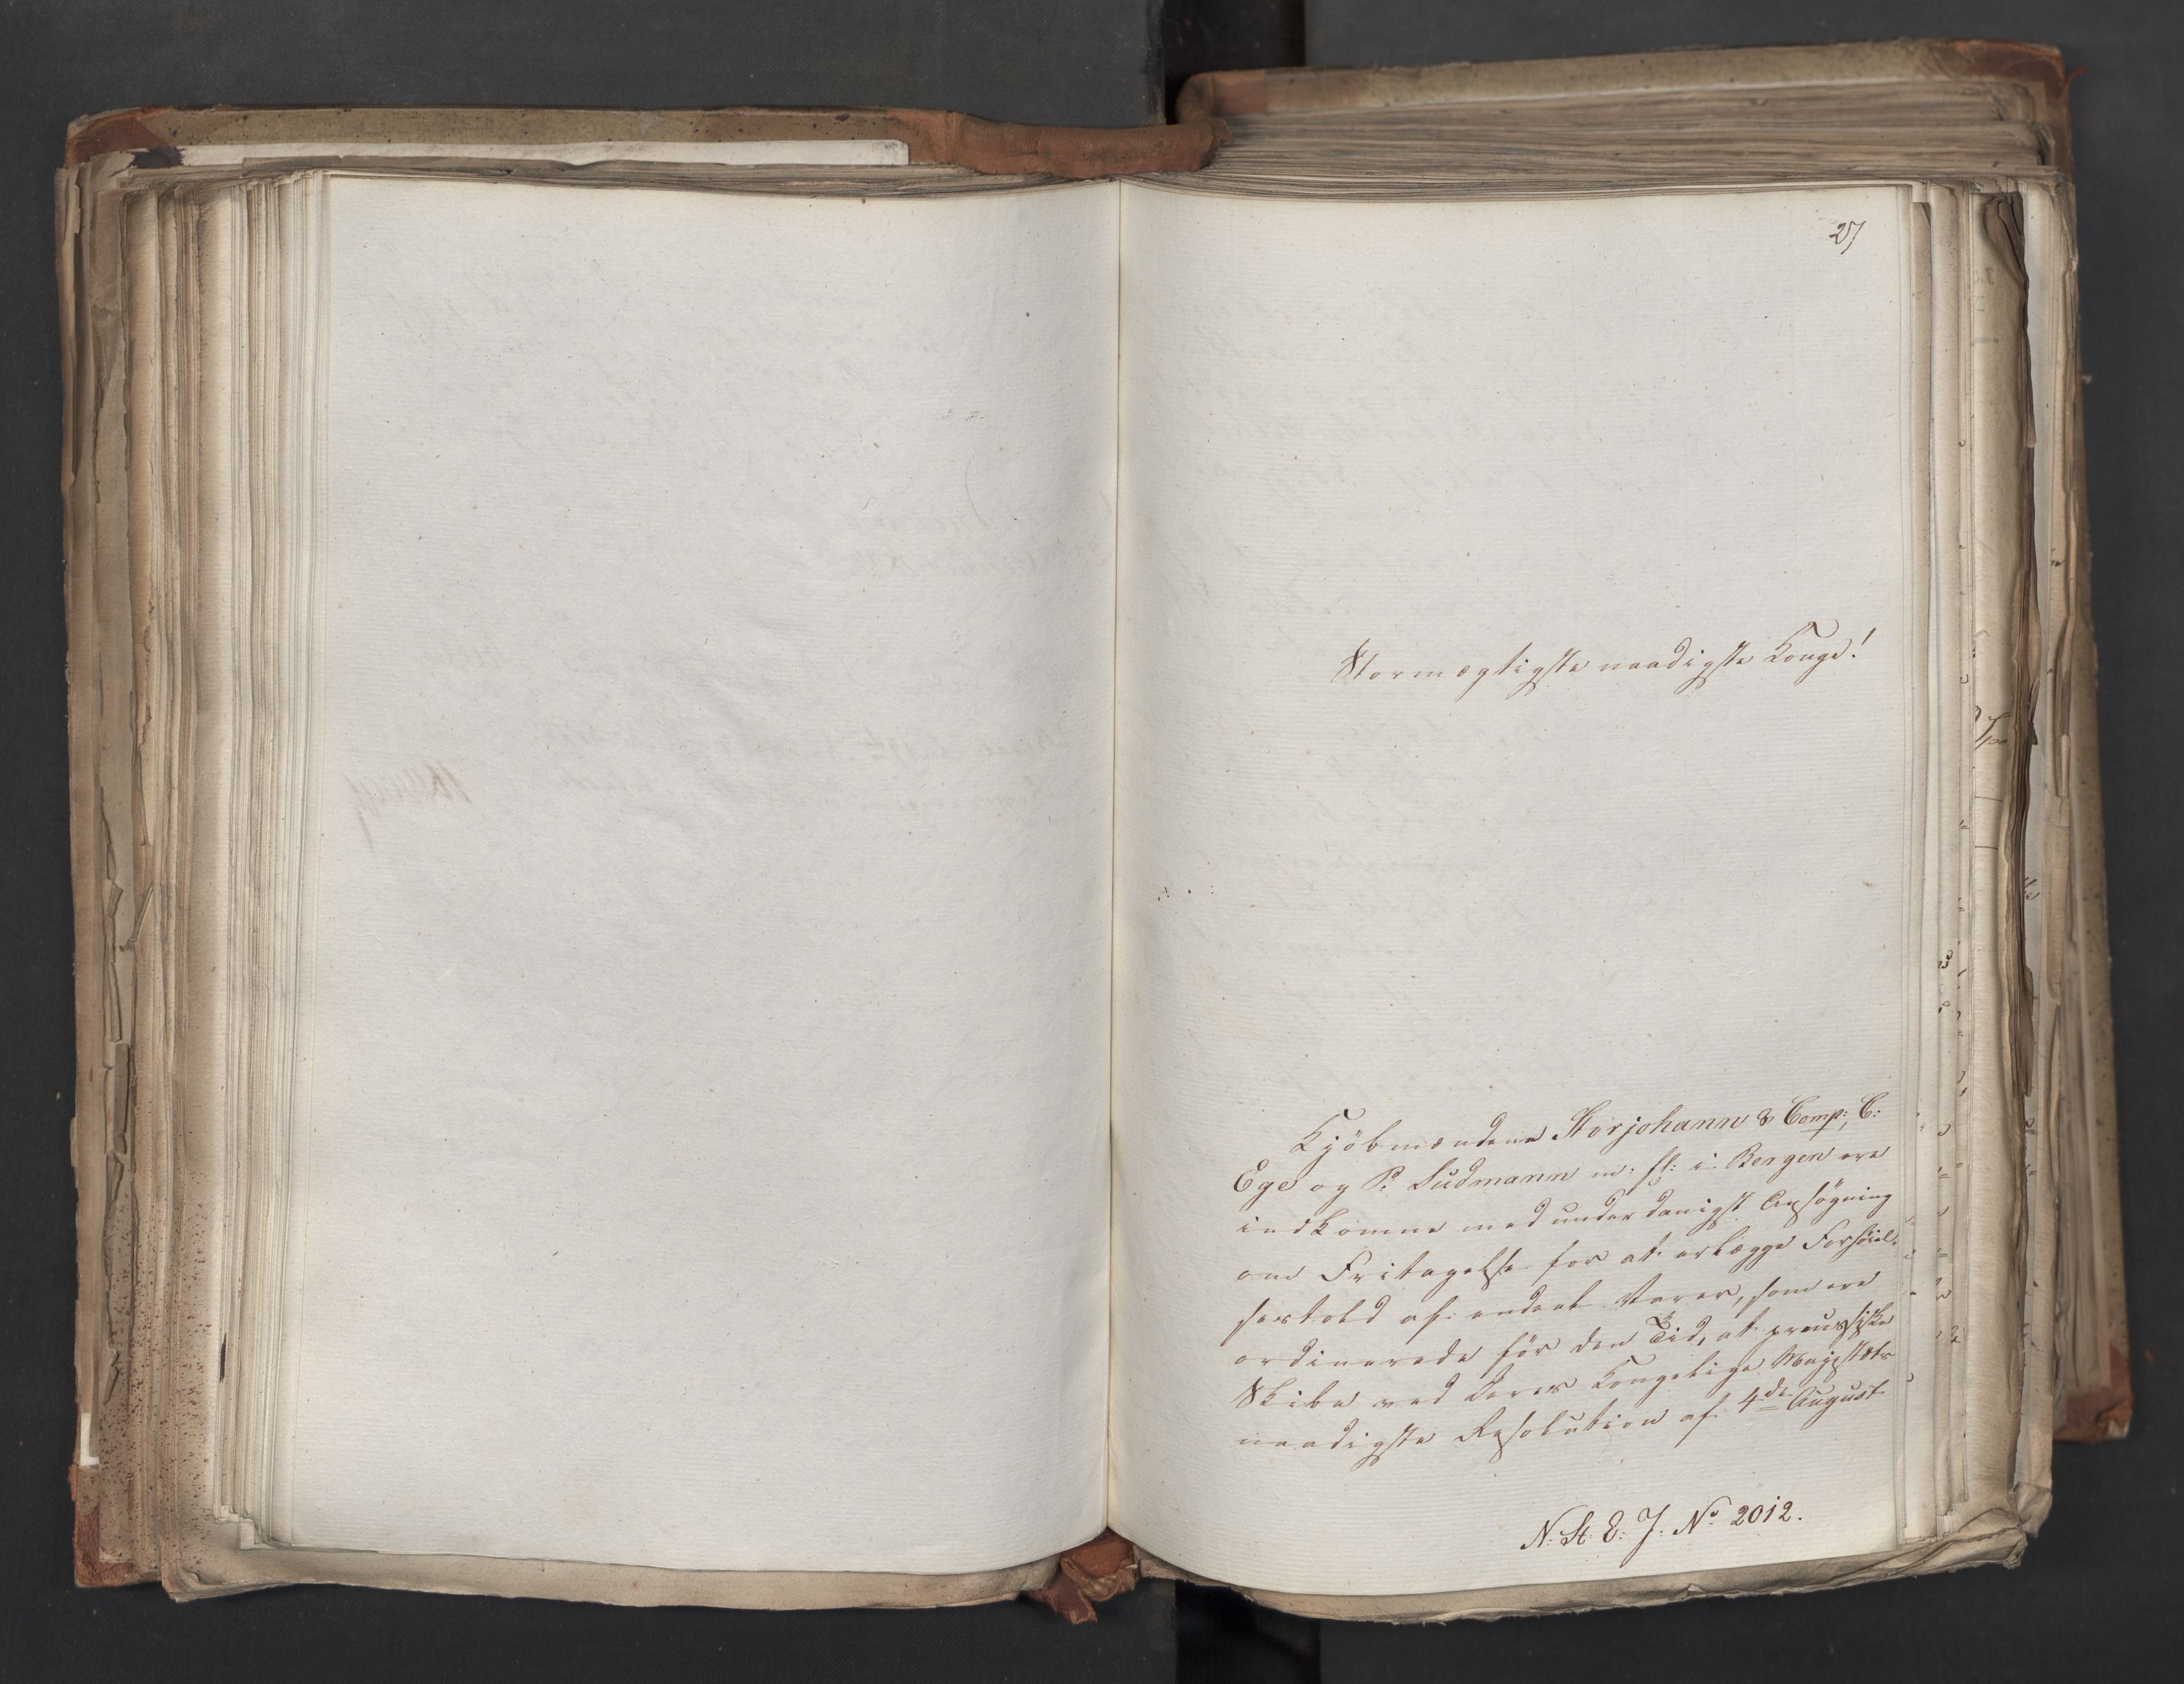 27
Stormægtigste naadigste Konge!
Kjöbmændene Storjohann & Comp:, C:
Ege og P. Sudmann m: fl: i Bergen ere
indkomne med underdanigst Ansögning
om Fritagelse for at erlægge Forhöiel-
sestold af endeel Varer, som ere
ordinerede för den Tid, at preussiske
Skibe ved Deres Kongelige Majestæts
naadigste Resolution af 4de August
N: St: E: J: No 2012.